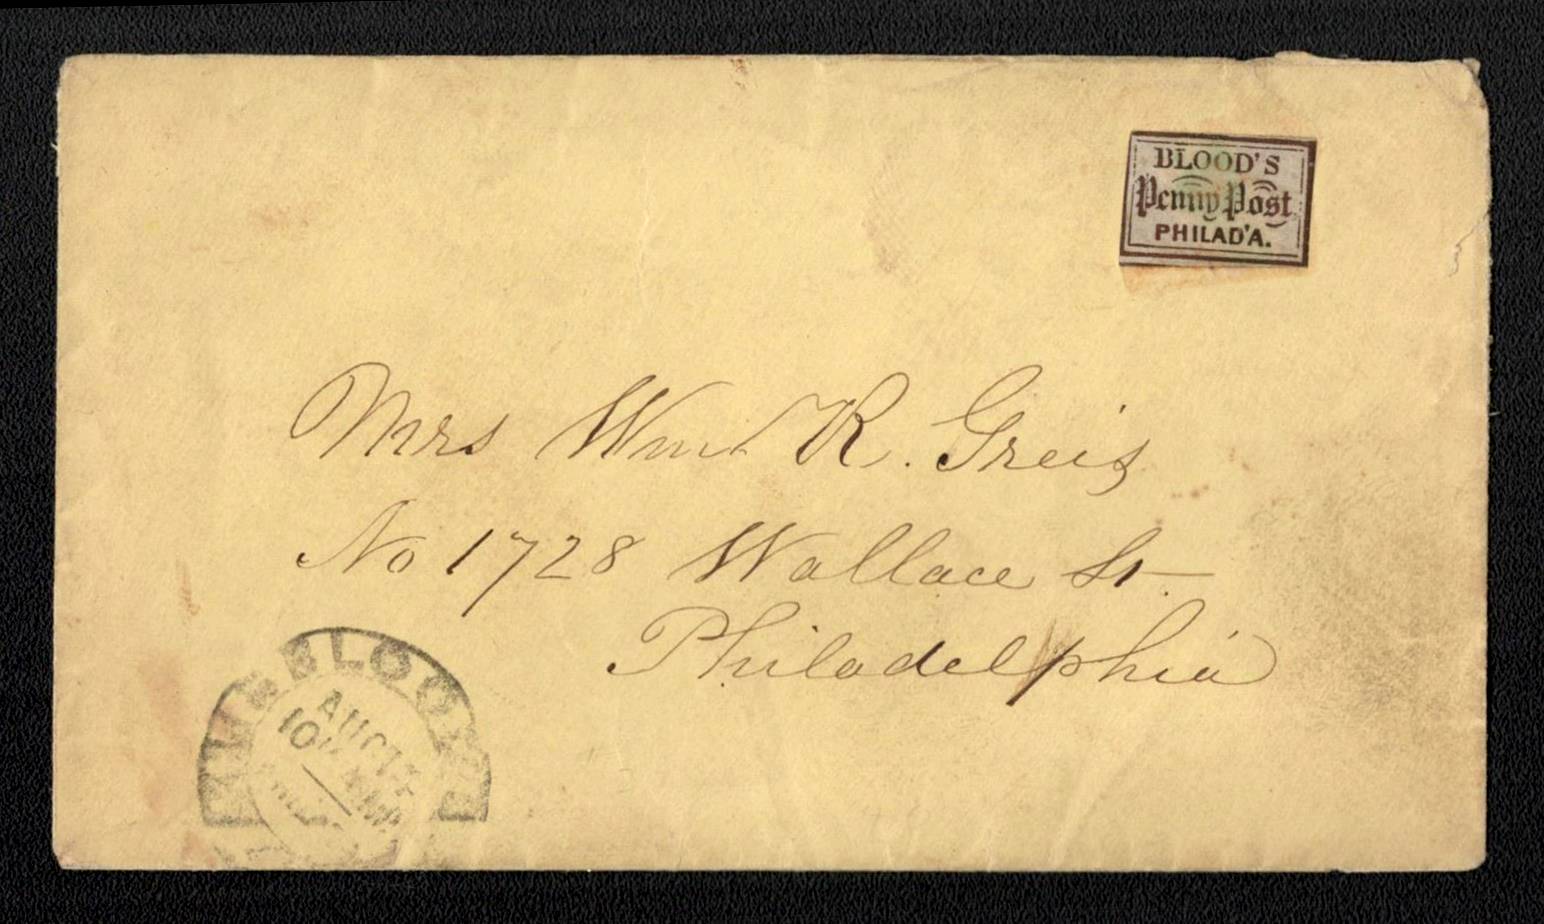 BLOOD'S
Penny Post
PHILAD'A.
Mrs Wm R. Greis
No 1728 Wallace St
Philadelphia
BLOOD'S